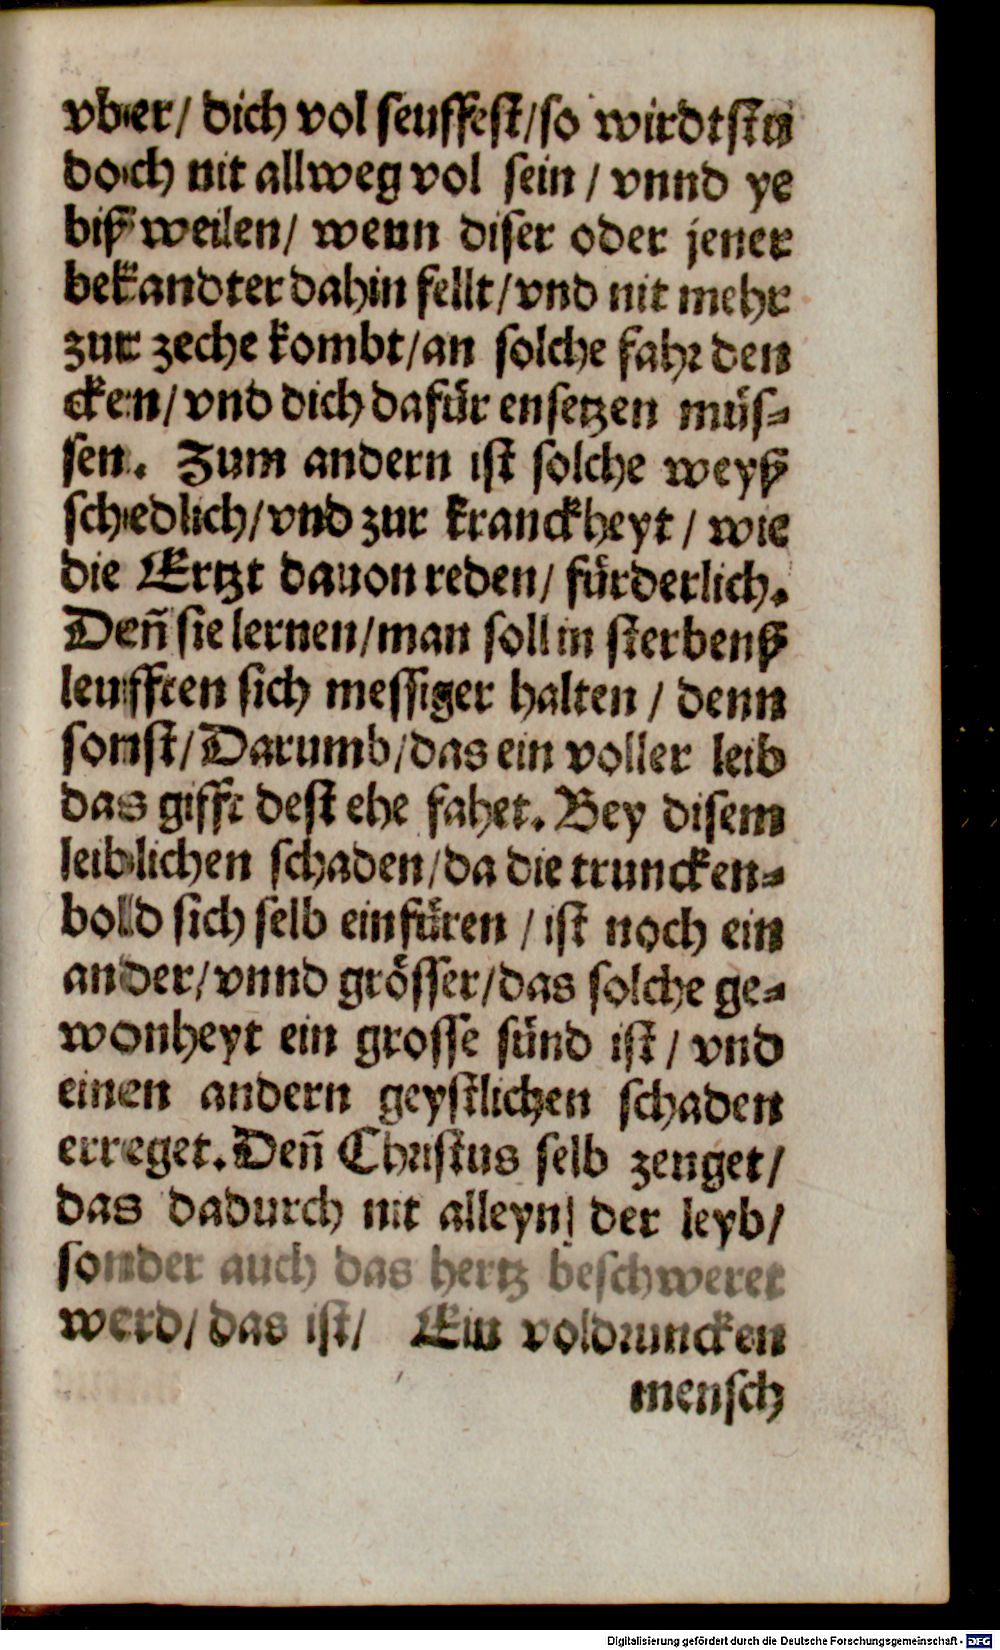 vber/ dich vol seuffest/so wirdtstu
doch nit allweg vol sein / vnnd ye
biß weilen/ wenn diser oder jener
bekandter dahin fellt/vnd nit mehr
zur zeche kombt/an solche fahr den
cken/vnd dich dafür ensetzen müs-
sen. Zum andern ist solche weyß
schedlich/vnd zur kranckheyt / wie
die Ertzt dauon reden/ fürderlich.
Deñ sie lernen/man soll in sterbenß
leufften sich messiger halten / denn
sonst/Darumb/das ein voller leib
das gifft dest ehe fahet. Bey disem
leiblichen schaden/da die truncken-
bold sich selb einfüren / ist noch ein
ander/vnnd grösser/das solche ge-
wonheyt ein grosse sünd ist / vnd
einen andern geystlichen schaden
erreget. Deñ Christus selb zeuget/
das dadurch nit alleyn der leyb/
sonder auch das hertz beschweret
werd/ das ist/ Ein voldruncken
mensch
Digitalisierung gefördert durch die Deutsche Forschungsgemeinschaft - DFG